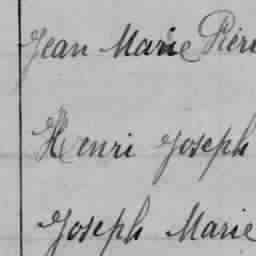 Jean Marie
Henri Joseph
Joseph Marie